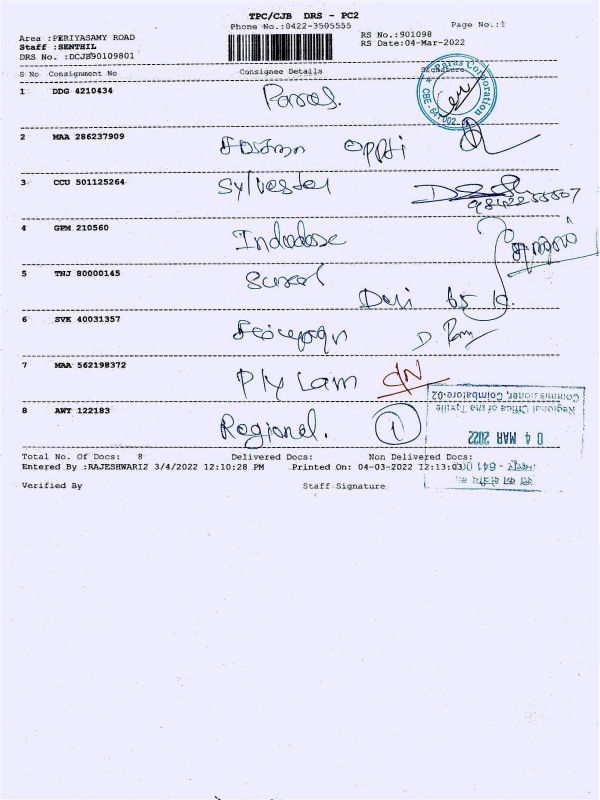 TPC/CJB DRS - PC2
Phone No.:0422-3505555
Page No.:1
Area :PERIYASAMY ROAD
RS No.:901098
Staff :SENTHIL
RS Date:04-Mar-2022
DRS No. :DCJB90109801
S No Consignment No Consignee Details Signature
Paras Corporation
CBE - 641 002
1 DDG 4210434 Paras.
2 MAA 286237909
3 CCU 501125264 Sylvester
9842255507
4 GPM 210560
5 TNJ 80000145
6 SVK 40031357
7 MAA 562198372 Ply Lam
8 AWT 122183 Regional. 1
Regional Office of the Textile
Commissioner, Coimbatore-02
0 4 MAR 2022
Total No. Of Docs: 8 Delivered Docs: Non Delivered Docs:
Entered By :RAJESHWARI2 3/4/2022 12:10:28 PM Printed On: 04-03-2022 12:13:03
Verified By Staff Signature